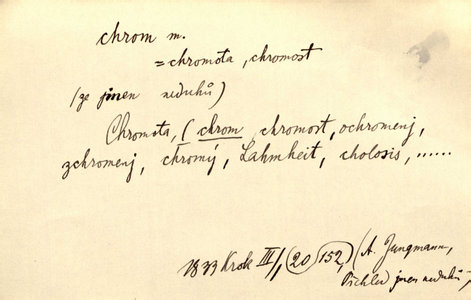 chrom m.
= chromota, chromost
(ze jmen neduhů)
Chromota, (chrom chromost, ochromenj,
zchromenj, chromý, Lahmheit, cholosis, ......
1833 Krok III/1, (20) 152, (A. Jungmann,
Pichler jmen neduhů)